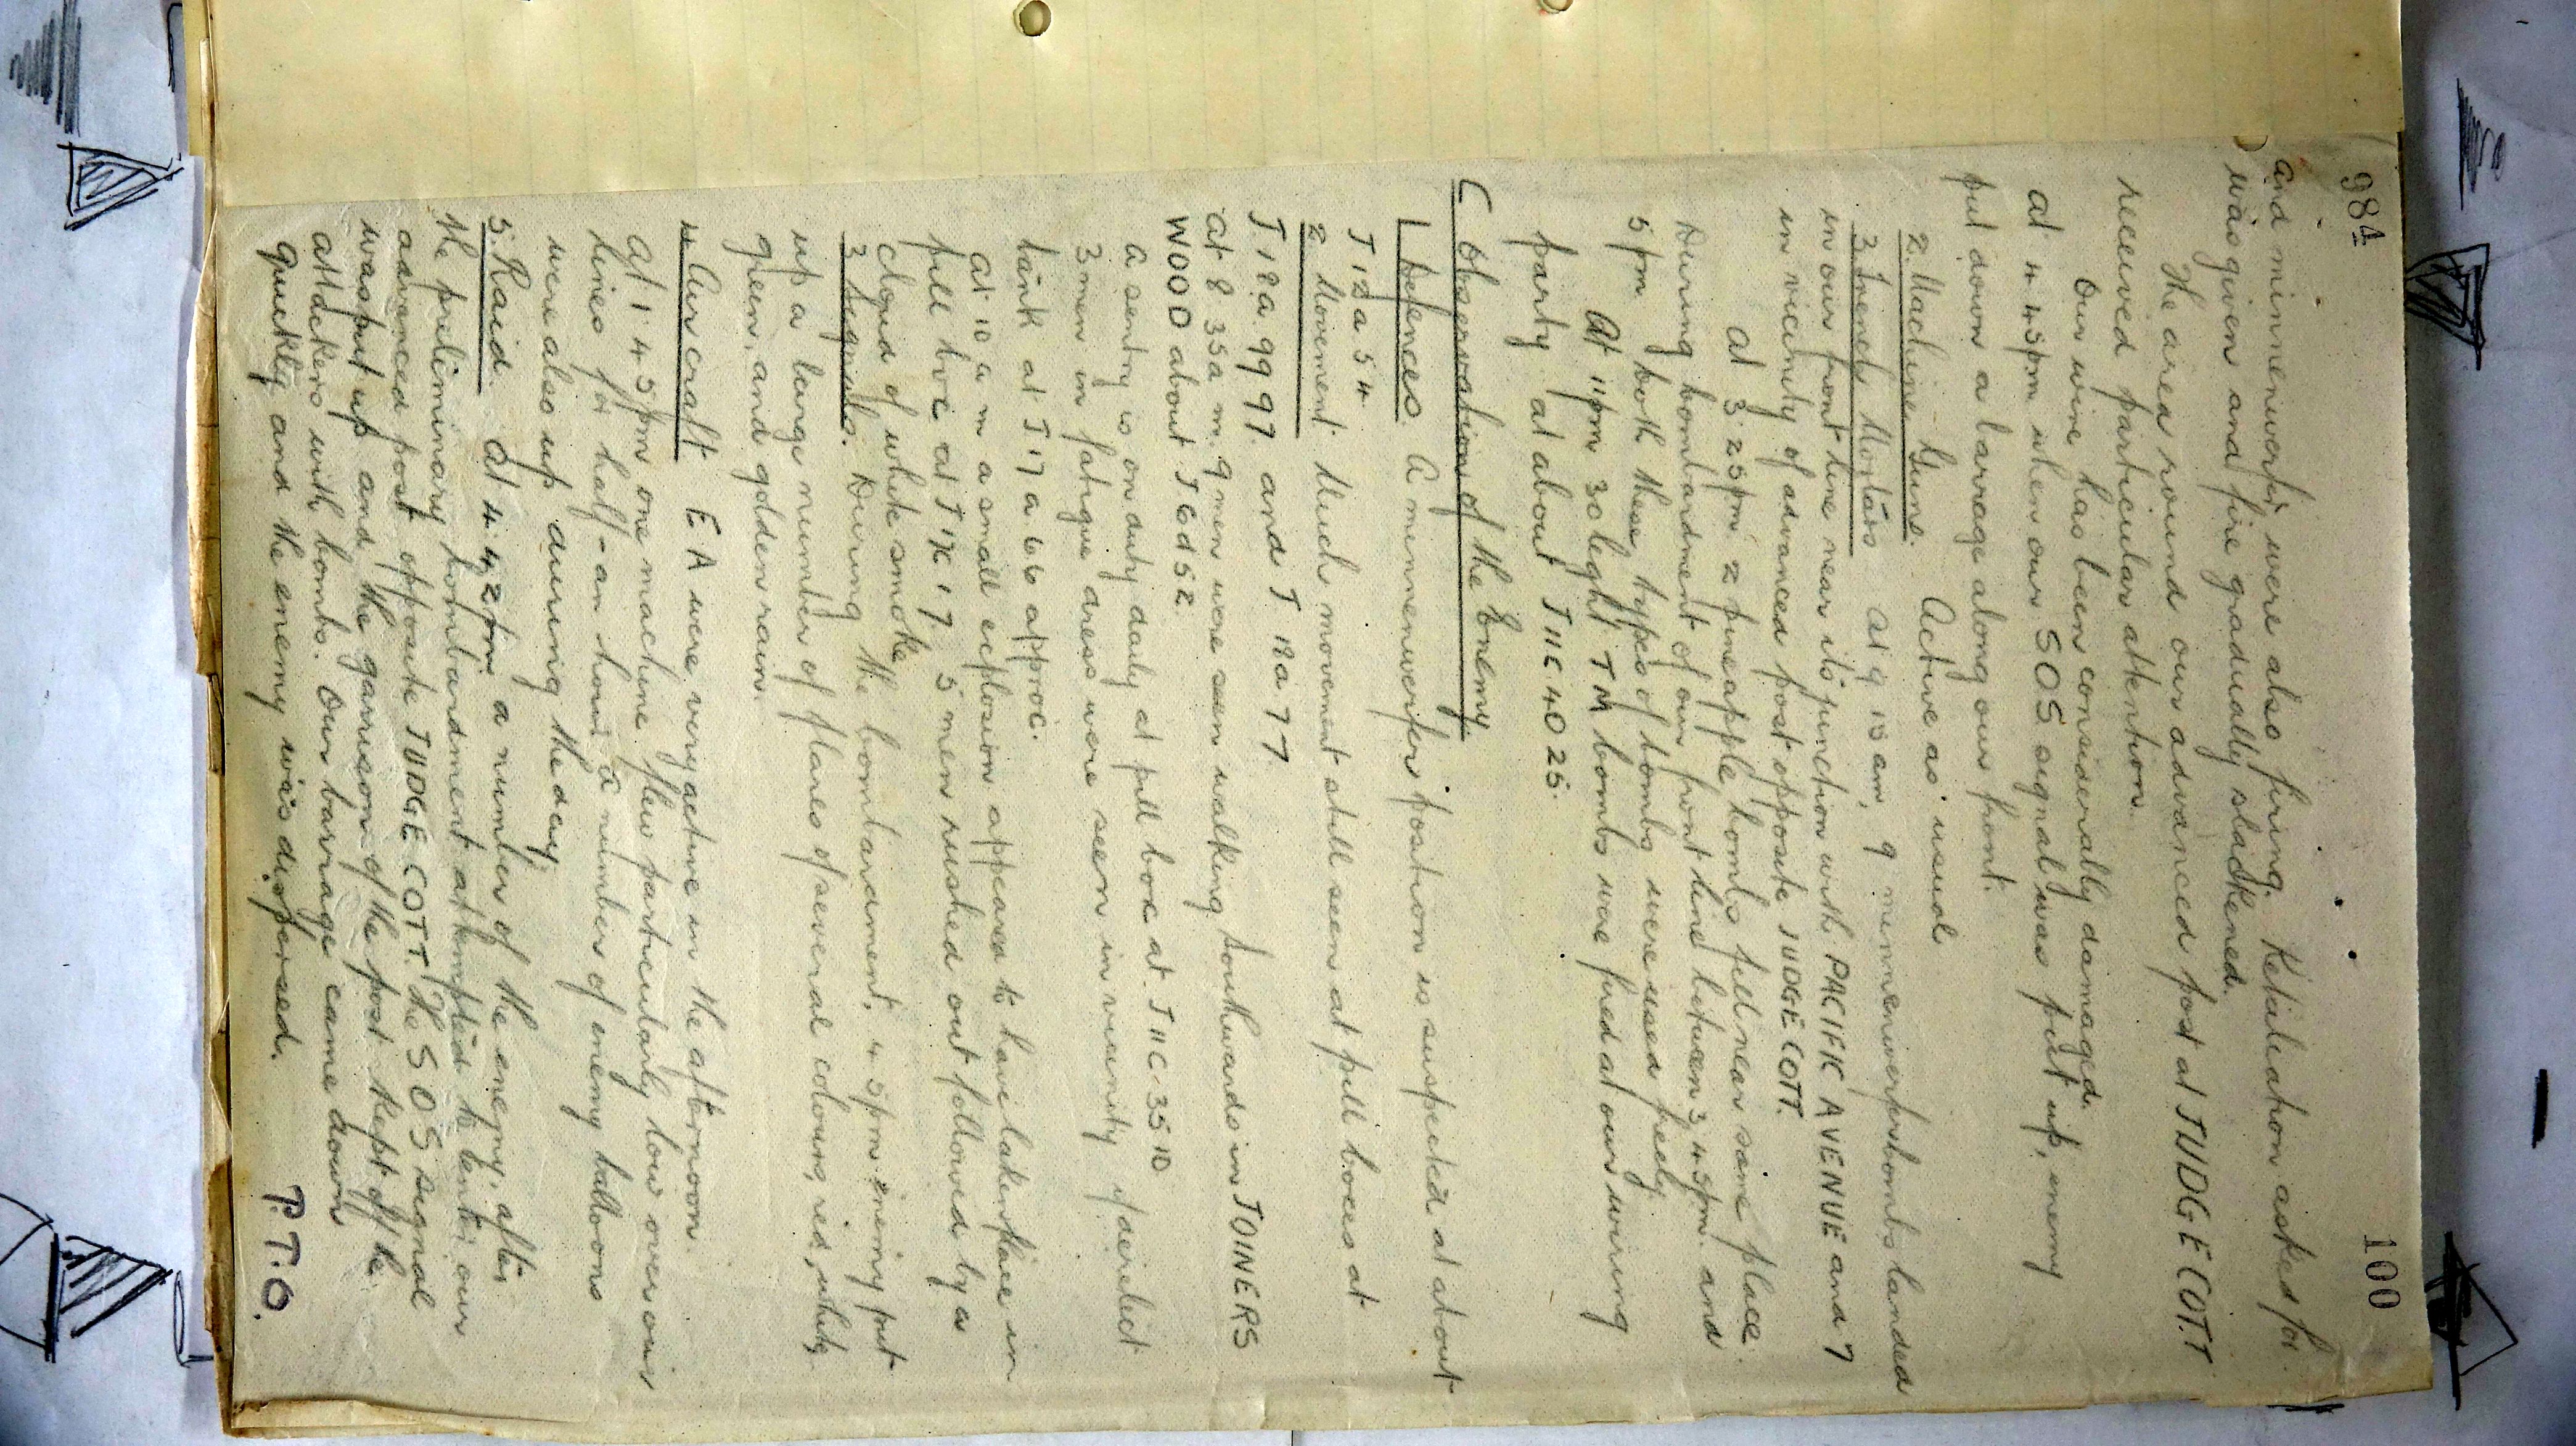 984
100
and minnenwerfer were also firing. Retaliation asked for
was given and fire gradually slackened.
The area round our advanced post at JUDGE COTT
received particular attention.
Our wire has been considerably damaged.
at 4 45pm when our SOS signal was put up, enemy
put down a barrage along our front.
2. Machine Guns. Active as usual
3 Trench Mortars At 9 15 am, 9 minnenwerfer bombs landed
in our front line near its junction with PACIFIC AVENUE and 7
in vicinity of advanced post opposite JUDGE COTT.
At 3 25pm 2 pineapple bombs fell near same place.
During bombardment of our front line between 3 45pm. and
5 pm both these types of bombs were used freely
At 11pm 30 light TM bombs were fired at our wiring
party at about J 11 c 40 25.
C Observation of the Enemy
1 Defences. A minnenwerfer position is suspected at about
J 12 a 5 4
2 Movement. Much movement still seen at pill boxes at
J 18 a 99 97. and J 18 a 7 7
at 8 35 a m. 9 men were seen walking southwards in JOINERS
WOOD about J 6 d 5 2
a sentry is on duty daily at pill box at J 11 C 35 10
3 men in fatigue dress were seen in vicinity of derelict
tank at J 17 a 6 6 approx.
at 10 a m a small explosion appeared to have taken place in
pill box at J 1 7 5 men rushed out followed by a
cloud of white smoke
3 Signals. During the bombardment, 4 5pm enemy put
up a large number of flares of several colours, red, white,
green, and golden rain.
4 Aircraft E A were very active in the afternoon.
At 1 45pm one machine flew particularly low over our
lines for half-an hour a number of enemy balloons
were also up during the day
5. Raid. At 4. 42pm a number of the enemy, after
the preliminary bombardment attempted to enter our
advanced post opposite JUDGE COTT. The S O S signal
was put up and the garrison of the post kept off the
attackers with bombs. Our barrage came down
quickly and the enemy was dispersed.
P.T.O.